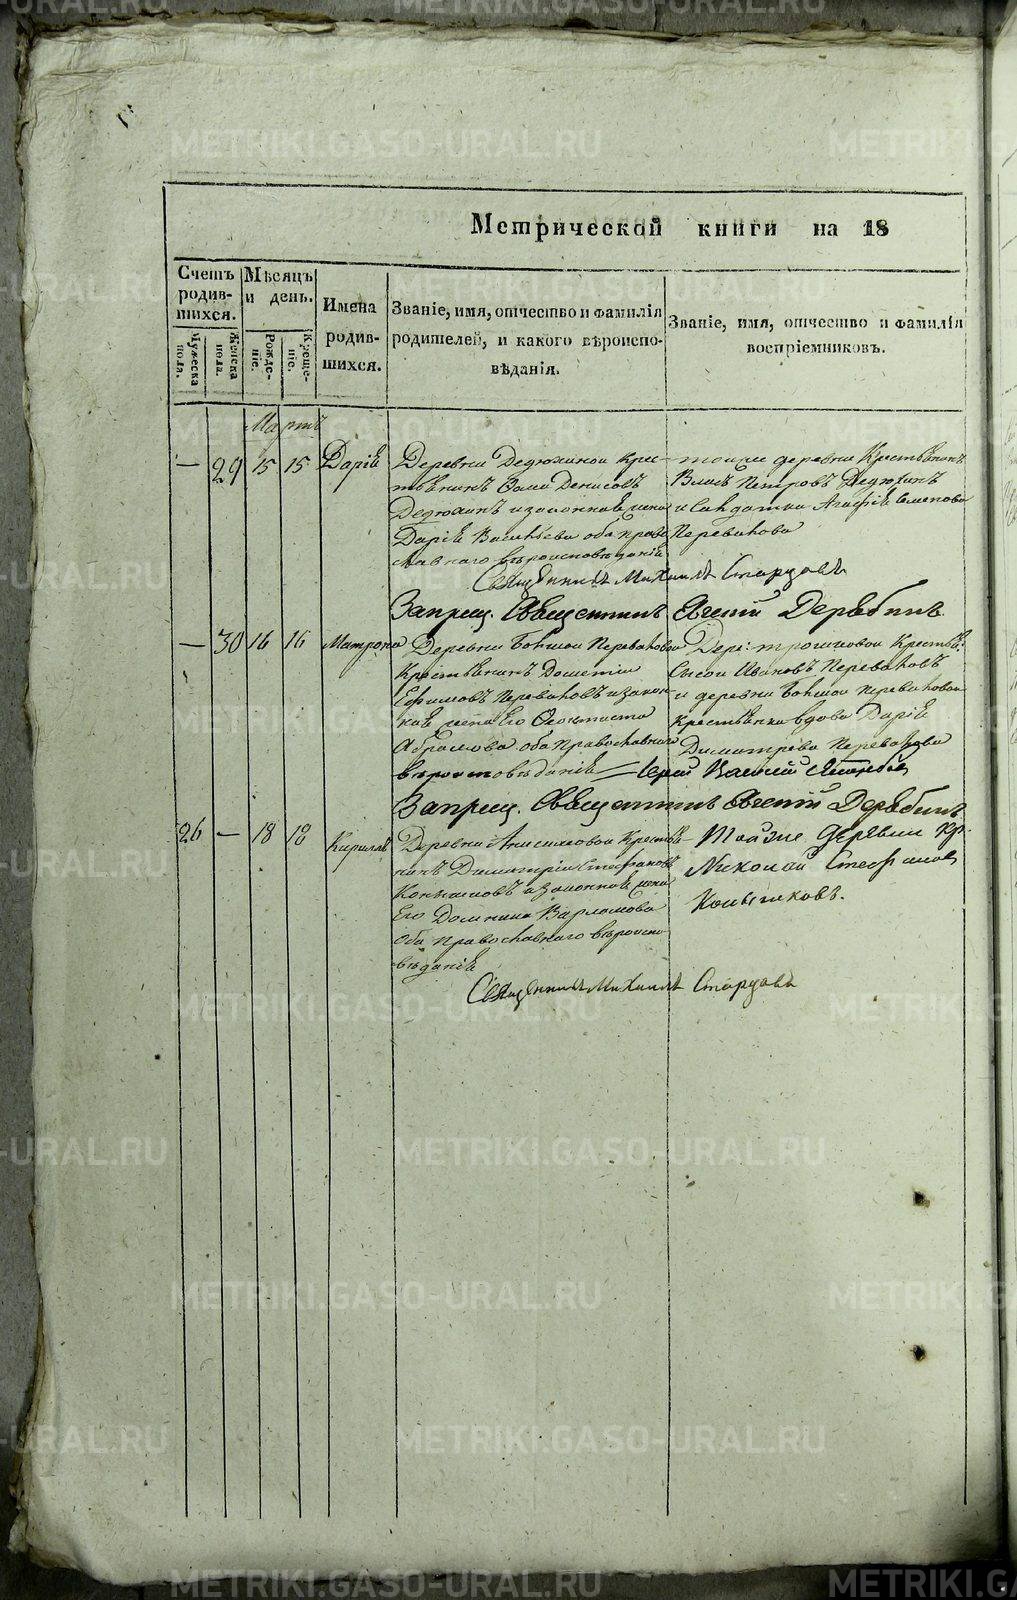 METRIKI.GASO-URAL.RU
Метрической книги на 18
Счетъ родив-шихся.
Мужеска пола.
Женска пола.
Мѣсяцъ и день.
Рожде-ніе.
Креще-ніе.
Имена родив-шихся.
Званіе, имя, отчество и фамилія
родителей, и какого вѣроиспо-
вѣданія.
Званіе, имя, отчество и фамилія
воспріемниковъ.
Мартъ
— 29 15 15 Дарiѣ
Деревни Дедюхиной Крес-
тьянинъ Денисовъ
Дедюхинъ и законная жена
Дарiя Васильева оба право
славнаго вѣроисповѣданiя
тойже деревни Крестьянинъ
Власъ Петровъ Дедюхинъ
и Солдатка Агафiя Семенова
Перевалова
Священникъ Михаилъ Старцовъ
Запрещ. Священникъ Евгенiй Дерябинъ
— 30 16 16 Матрона
Деревни Большой Переваловой
Крестьянинъ Дометiй
Ефимовъ Переваловъ и закон-
ная жена Его Феоктиста
Абрамова оба Православнаго
вѣроисповѣданiя
Дере: Трошковой Крестья:
Сысой Ивановъ Переваловъ
и деревни Большой Переваловой
Крестьянка вдова Дарiя
Димитрева Перевалова
Iерей
Запрещ. Священникъ Евгенiй Дерябинъ
26 — 18 18 Кириллъ
Деревни Анисимовой Крестья-
нинъ Димитрiй Стефановъ
Копысовъ и законная жена
Его Домнина Варламова
Оба православнаго вѣроиспо
вѣданiя
Тойже деревни Кр.
Николай Стефановъ
Священникъ Михаилъ Старцовъ